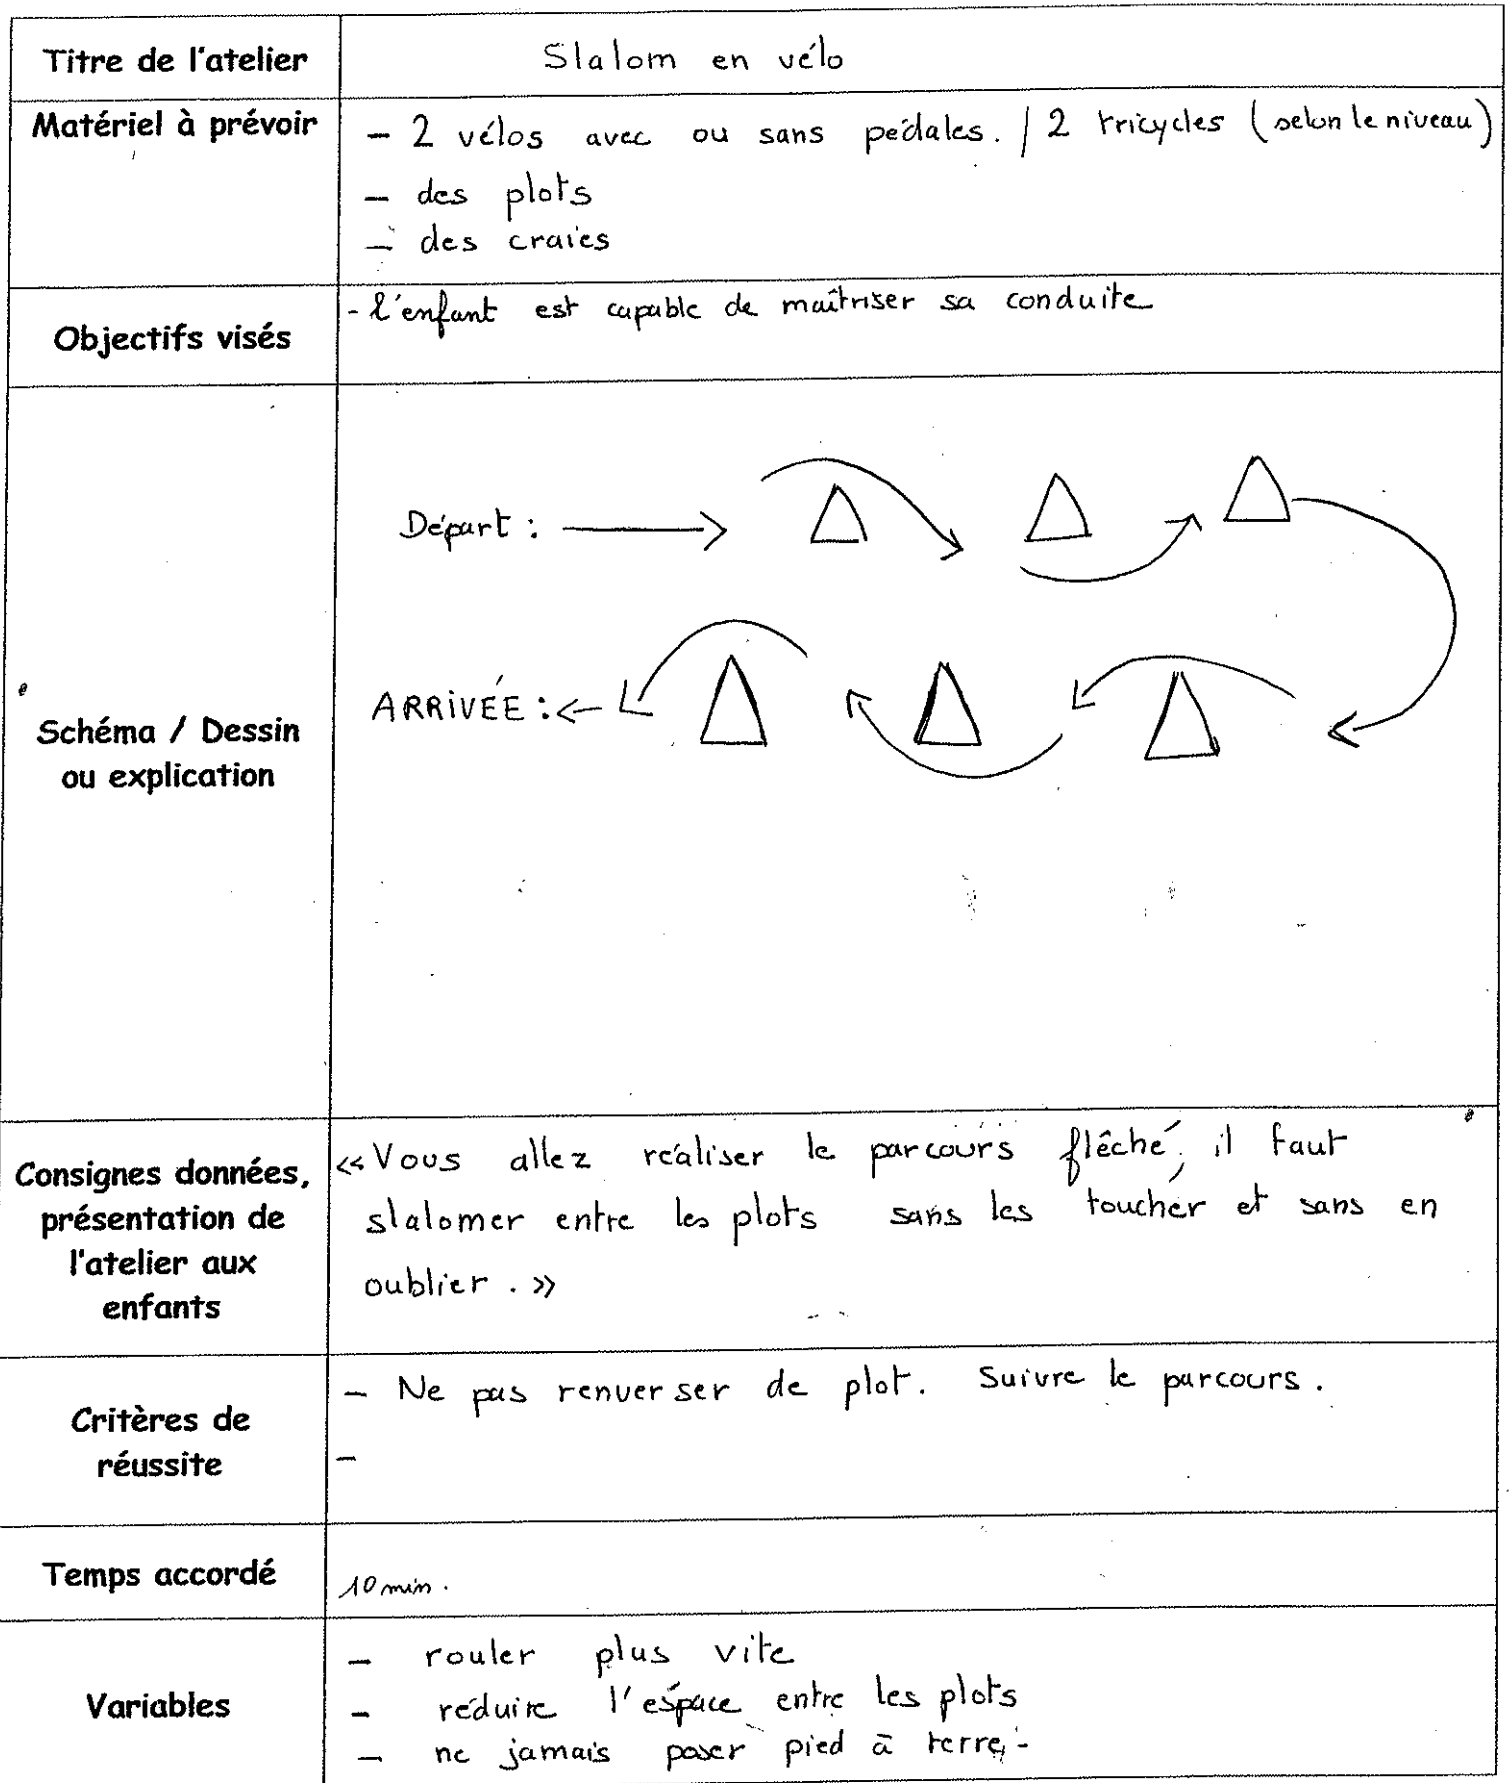 Titre de l'atelier
Slalom en vélo
Matériel à prévoir
- 2 vélos avec ou sans pédales. / 2 tricycles (selon le niveau)
- des plots
- des craies
Objectifs visés
- l'enfant est capable de maîtriser sa conduite
Schéma / Dessin
ou explication
Départ :
ARRIVÉE :
Consignes données,
présentation de
l'atelier aux
enfants
«Vous allez réaliser le parcours flêché, il faut
slalomer entre les plots sans les toucher et sans en
oublier. »
Critères de
réussite
- Ne pas renverser de plot. Suivre le parcours.
-
Temps accordé
10 min.
Variables
- rouler plus vite
- réduire l'espace entre les plots
- ne jamais poser pied à terre.